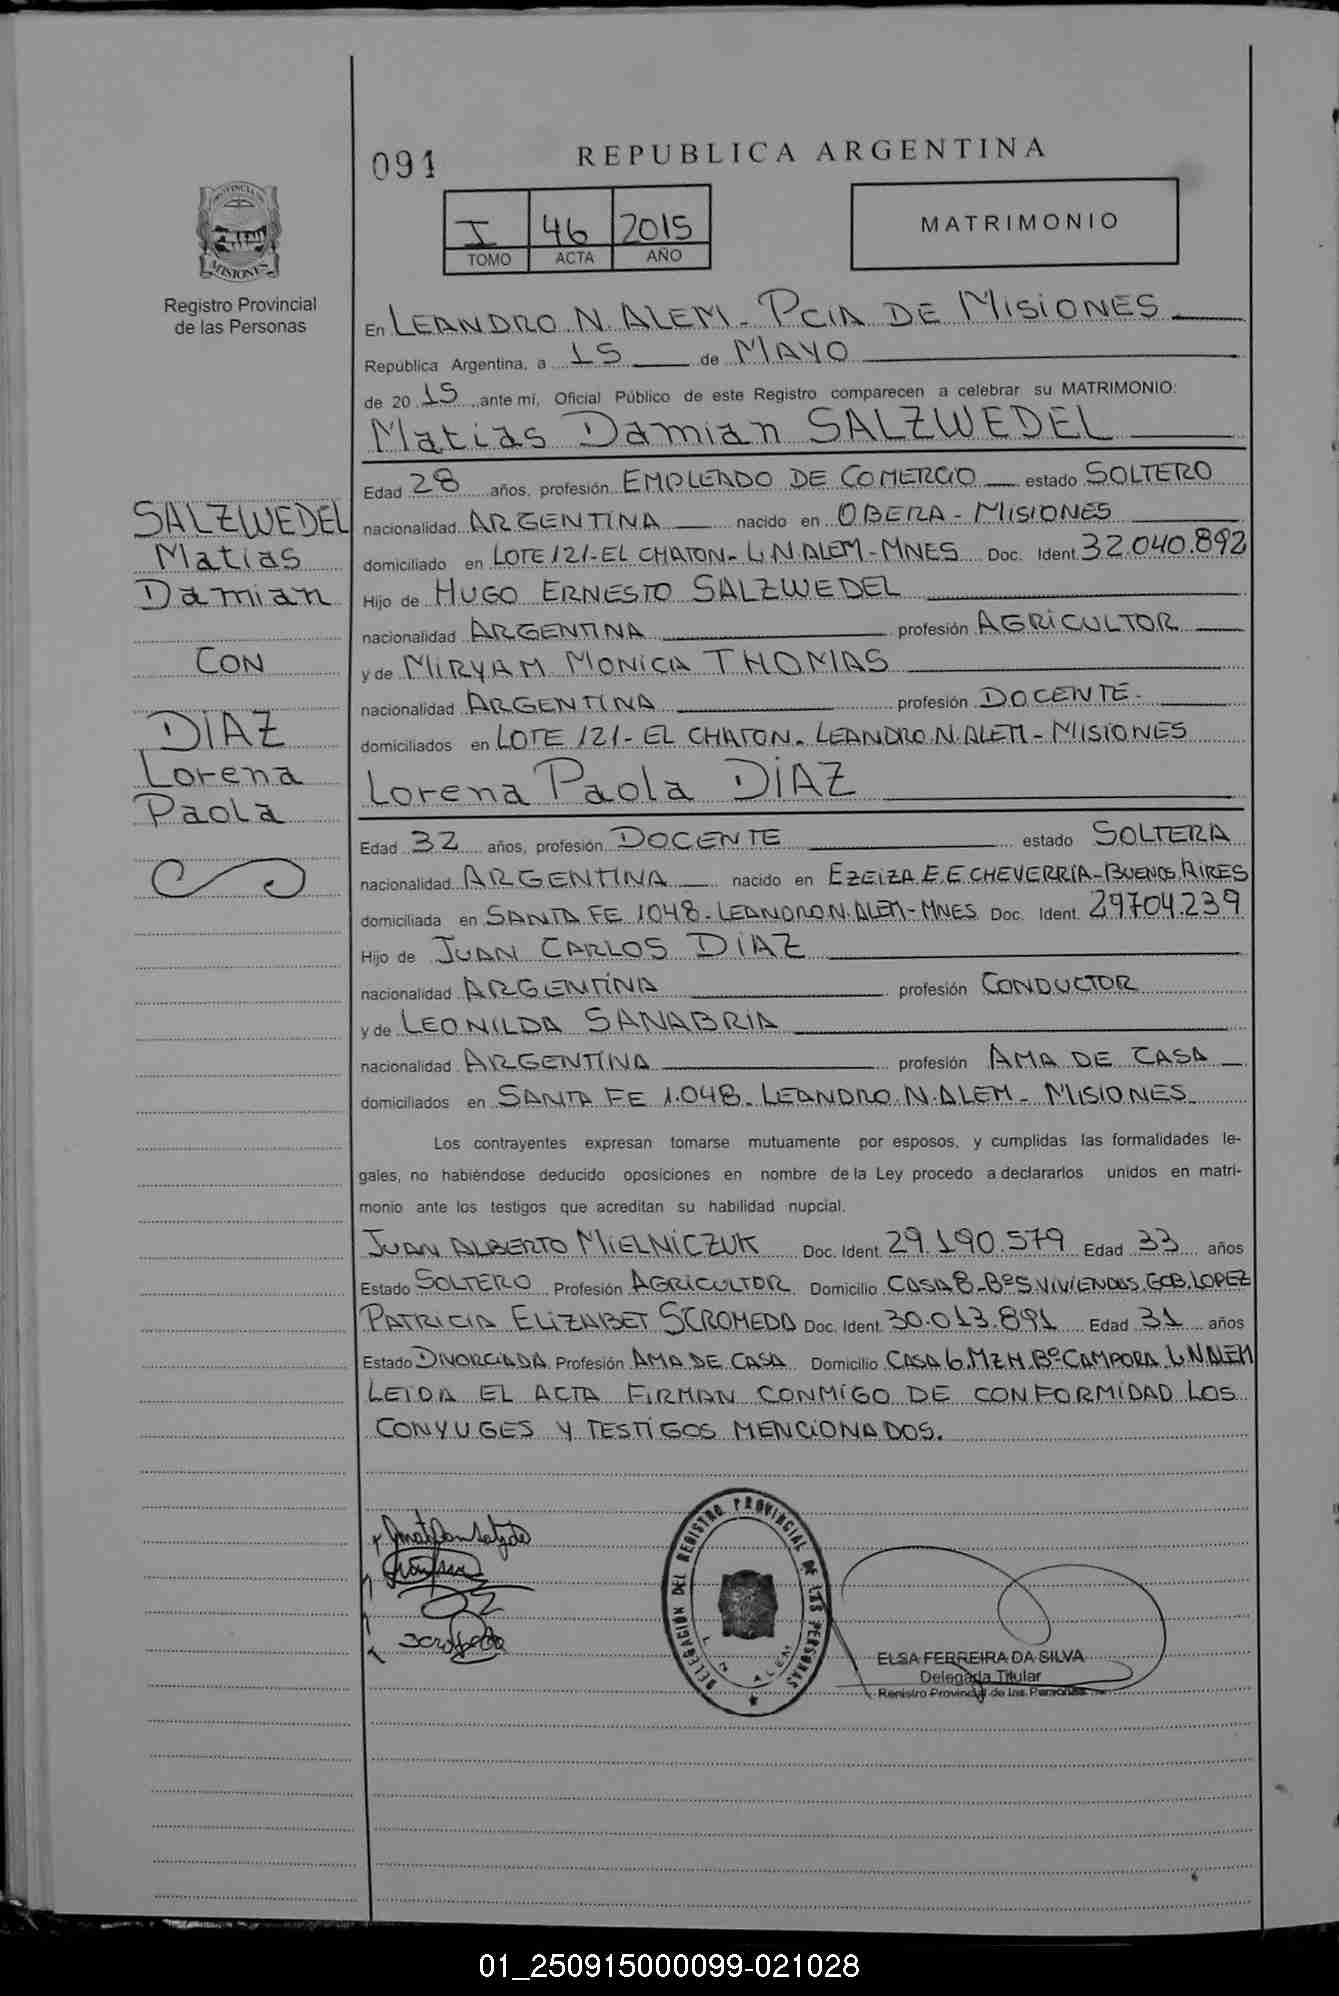 091
REPUBLICA ARGENTINA
I 46 2015
TOMO ACTA AÑO
MATRIMONIO
MISIONES
Registro Provincial
de las Personas
En LEANDRO N. ALEM - PCIA DE MISIONES
República Argentina, a 15 de MAYO
de 20 15 ante mí, Oficial Público de este Registro comparecen a celebrar su MATRIMONIO:
Matias Damian SALZWEDEL
Edad 28 años, profesión EMPLEADO DE COMERCIO estado SOLTERO
nacionalidad ARGENTINA nacido en OBERA - MISIONES
domiciliado en LOTE 121 - EL CHATON - L.N.ALEM - MNES Doc. Ident. 32.040.892
Hijo de HUGO ERNESTO SALZWEDEL
nacionalidad ARGENTINA profesión AGRICULTOR
y de MIRYAM MONICA THOMAS
nacionalidad ARGENTINA profesión DOCENTE
domiciliados en LOTE 121 - EL CHATON - LEANDRO N. ALEM - MISIONES
Lorena Paola DIAZ
Edad 32 años, profesión DOCENTE estado SOLTERA
nacionalidad ARGENTINA nacido en EZEIZA E. ECHEVERRÍA - BUENOS AIRES
domiciliada en SANTA FE 1048 - LEANDRO N. ALEM - MNES Doc. Ident. 29704.239
Hijo de JUAN CARLOS DIAZ
nacionalidad ARGENTINA profesión CONDUCTOR
y de LEONILDA SANABRIA
nacionalidad ARGENTINA profesión AMA DE CASA
domiciliados en SANTA FE 1.048 - LEANDRO N. ALEM - MISIONES
Los contrayentes expresan tomarse mutuamente por esposos, y cumplidas las formalidades le-
gales, no habiéndose deducido oposiciones en nombre de la Ley procedo a declararlos unidos en matri-
monio ante los testigos que acreditan su habilidad nupcial.
JUAN ALBERTO MIELNICZUK Doc. Ident. 29.190.579 Edad 33 años
Estado SOLTERO Profesión AGRICULTOR Domicilio CASA 8 - Bº 5 VIVIENDAS, GOB. LOPEZ
PATRICIA ELIZABET SCROMEDA Doc. Ident. 30.013.891 Edad 31 años
Estado DIVORCIADA Profesión AMA DE CASA Domicilio CASA 6. MZ H. Bº CAMPORA. L.N.ALEM
LEIDA EL ACTA FIRMAN CONMIGO DE CONFORMIDAD LOS
CONYUGES Y TESTIGOS MENCIONADOS.
SALZWEDEL
Matias
Damian
CON
DIAZ
Lorena
Paola
DELEGACIÓN DEL REGISTRO PROVINCIAL DE LAS PERSONAS
L. N. ALEM
ELSA FERREIRA DA SILVA
Delegada Titular
Registro Provincial de las Personas
01_250915000099-021028